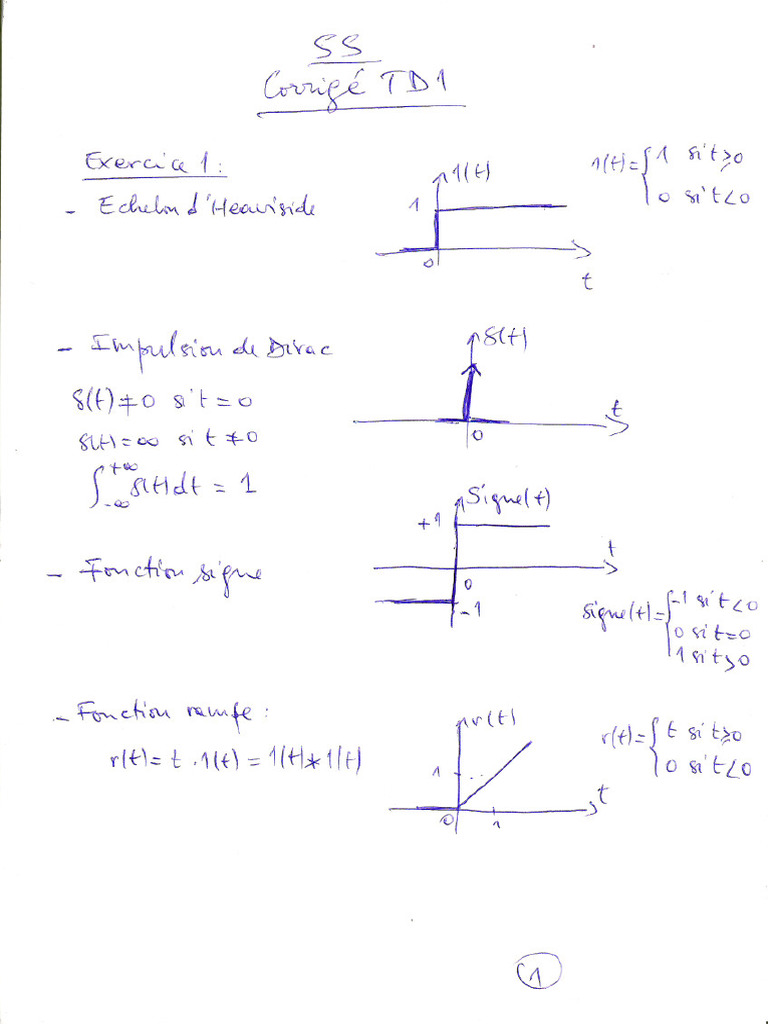 SS
Corrigé TD1
Exercice 1:
- Echelon d'Heaviside
1(t)
1
0
t
1(t)= { 1 si t≥0
0 si t<0
- Impulsion de Dirac
δ(t)
t
0
δ(t)≠0 si t=0
δ(t)=∞ si t≠0
∫_{-∞}^{+∞} δ(t)dt = 1
- Fonction signe
Signe(t)
+1
t
0
-1
signe(t)= { -1 si t<0
0 si t=0
1 si t>0
- Fonction rampe:
r(t)= t . 1(t) = 1(t)*1(t)
r(t)
1
0
1
t
r(t)= { t si t≥0
0 si t<0
1